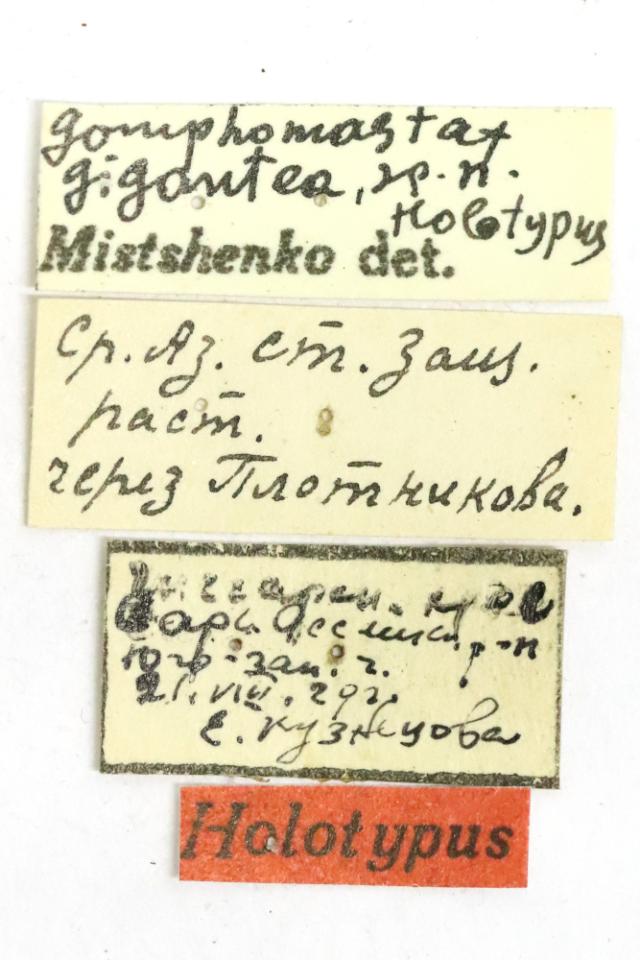 gomphomastax
gigantea, sp. n.
Holotypus
Mistshenko det.
Ср. Аз. ст. Защ.
раст.
через Плотникова.
р-н
Юго-зап. ч.
21. VIII. 29г.
Е. Кузнецова
Holotypus